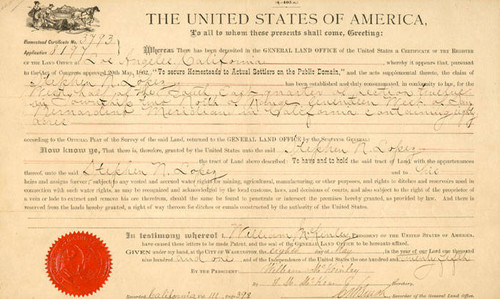 (4-405.)
THE UNITED STATES OF AMERICA,
To all to whom these presents shall come, Greeting:
Homestead Certificate No. 3793
Application 8197
Whereas There has been deposited in the GENERAL LAND OFFICE of the United States a CERTIFICATE OF THE REGISTER
OF THE LAND OFFICE AT Los Angeles, California, whereby it appears that, pursuant
to the Act of Congress approved 20th May, 1862, "To secure Homesteads to Actual Settlers on the Public Domain," and the acts supplemental thereto, the claim of
Stephen N. Lopez has been established and duly consummated, in conformity to law, for the
West half of the South East quarter of Section
in Township one North of Range seventeen West of San
Bernardino Meridian in California containing eighty
acres
according to the OFFICIAL PLAT of the Survey of the said Land, returned to the GENERAL LAND OFFICE by the SURVEYOR GENERAL:
Now know ye, That there is, therefore, granted by the United States unto the said Stephen N. Lopez
the tract of Land above described: To have and to hold the said tract of Land, with the appurtenances
thereof, unto the said Stephen N. Lopez and to his
heirs and assigns forever; subject to any vested and accrued water rights for mining, agricultural, manufacturing, or other purposes, and rights to ditches and reservoirs used in
connection with such water rights, as may be recognized and acknowledged by the local customs, laws, and decisions of courts, and also subject to the right of the proprietor of
a vein or lode to extract and remove his ore therefrom, should the same be found to penetrate or intersect the premises hereby granted, as provided by law. And there is
reserved from the lands hereby granted, a right of way thereon for ditches or canals constructed by the authority of the United States.
In testimony whereof I, William McKinley, PRESIDENT OF THE UNITED STATES OF AMERICA,
have caused these letters to be made Patent, and the seal of the GENERAL LAND OFFICE to be hereunto affixed.
GIVEN under my hand, at the CITY OF WASHINGTON, the eighth day of in the year of our Lord one thousand
nine hundred and one, and of the Independence of the United States the one hundred and twenty-fifth
BY THE PRESIDENT: William McKinley
By F. M. McKean, Secretary.
Recorder of the General Land Office.
Recorded, California Vol. 111 page 398